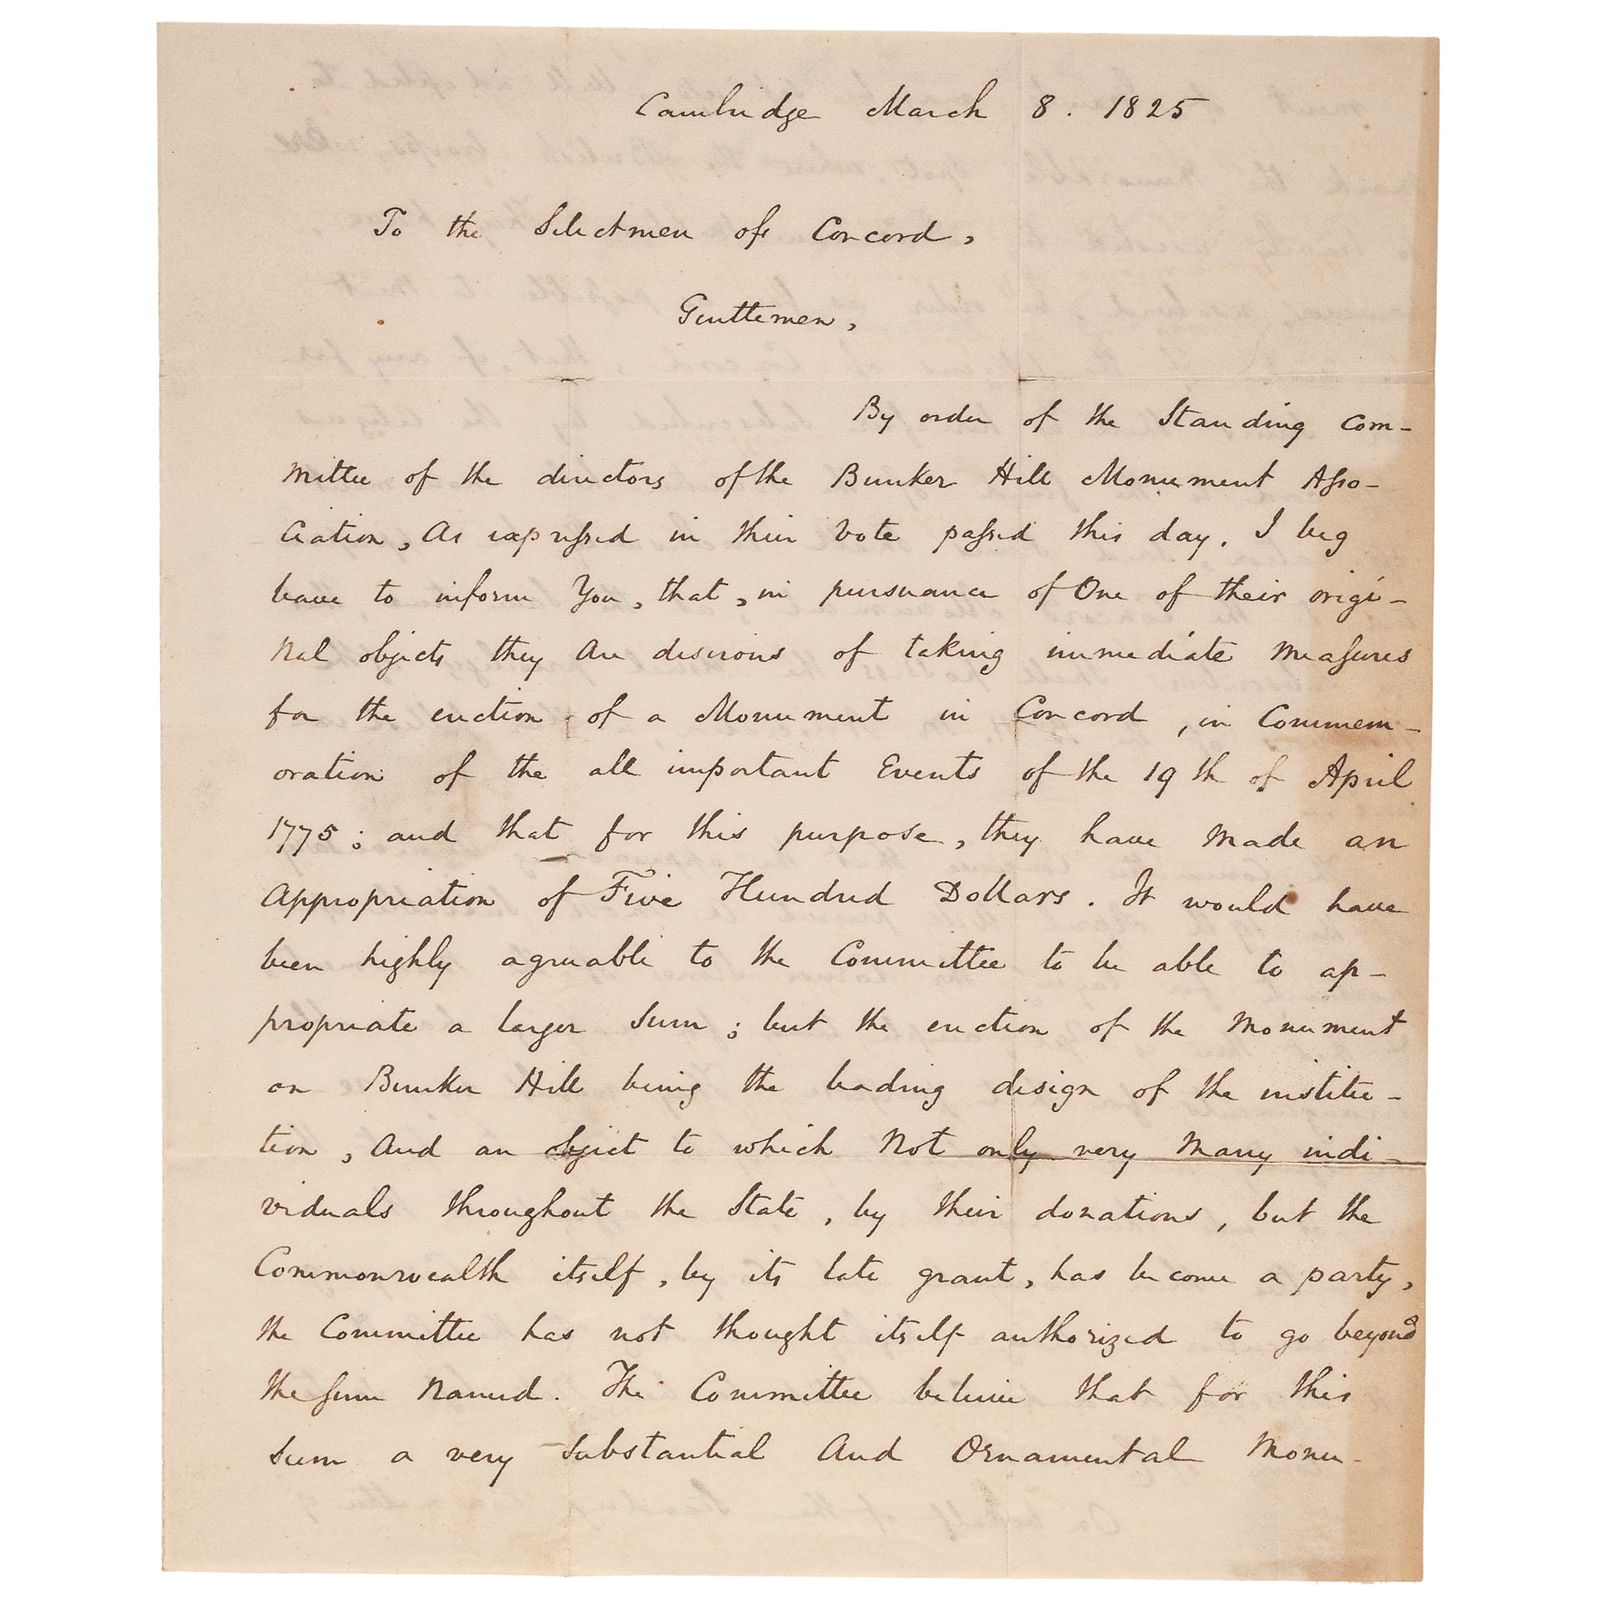 Cambridge March 8. 1825
To the Selectmen of Concord,
Gentlemen,
By order of the Standing Com-
mittee of the directors of the Bunker Hill Monument Asso-
ciation, As expressed in their Vote passed this day, I beg
leave to inform You, that, in pursuance of One of their origi-
nal objects they are desirous of taking immediate measures
for the erection of a Monument in Concord, in Commem-
oration of the all important Events of the 19th of April
1775; and that for this purpose, they have made an
Appropriation of Five Hundred Dollars. It would have
been highly agreeable to the Committee to be able to ap-
propriate a larger Sum; but the erection of the Monument
on Bunker Hill being the leading design of the institu-
tion, And an object to which Not only very Many indi-
viduals throughout the State, by their donations, but the
Commonwealth itself, by its late grant, has become a party,
the Committee has not thought itself authorized to go beyond
the sum Named. The Committee believe that for this
Sum a very Substantial And Ornamental Monu-